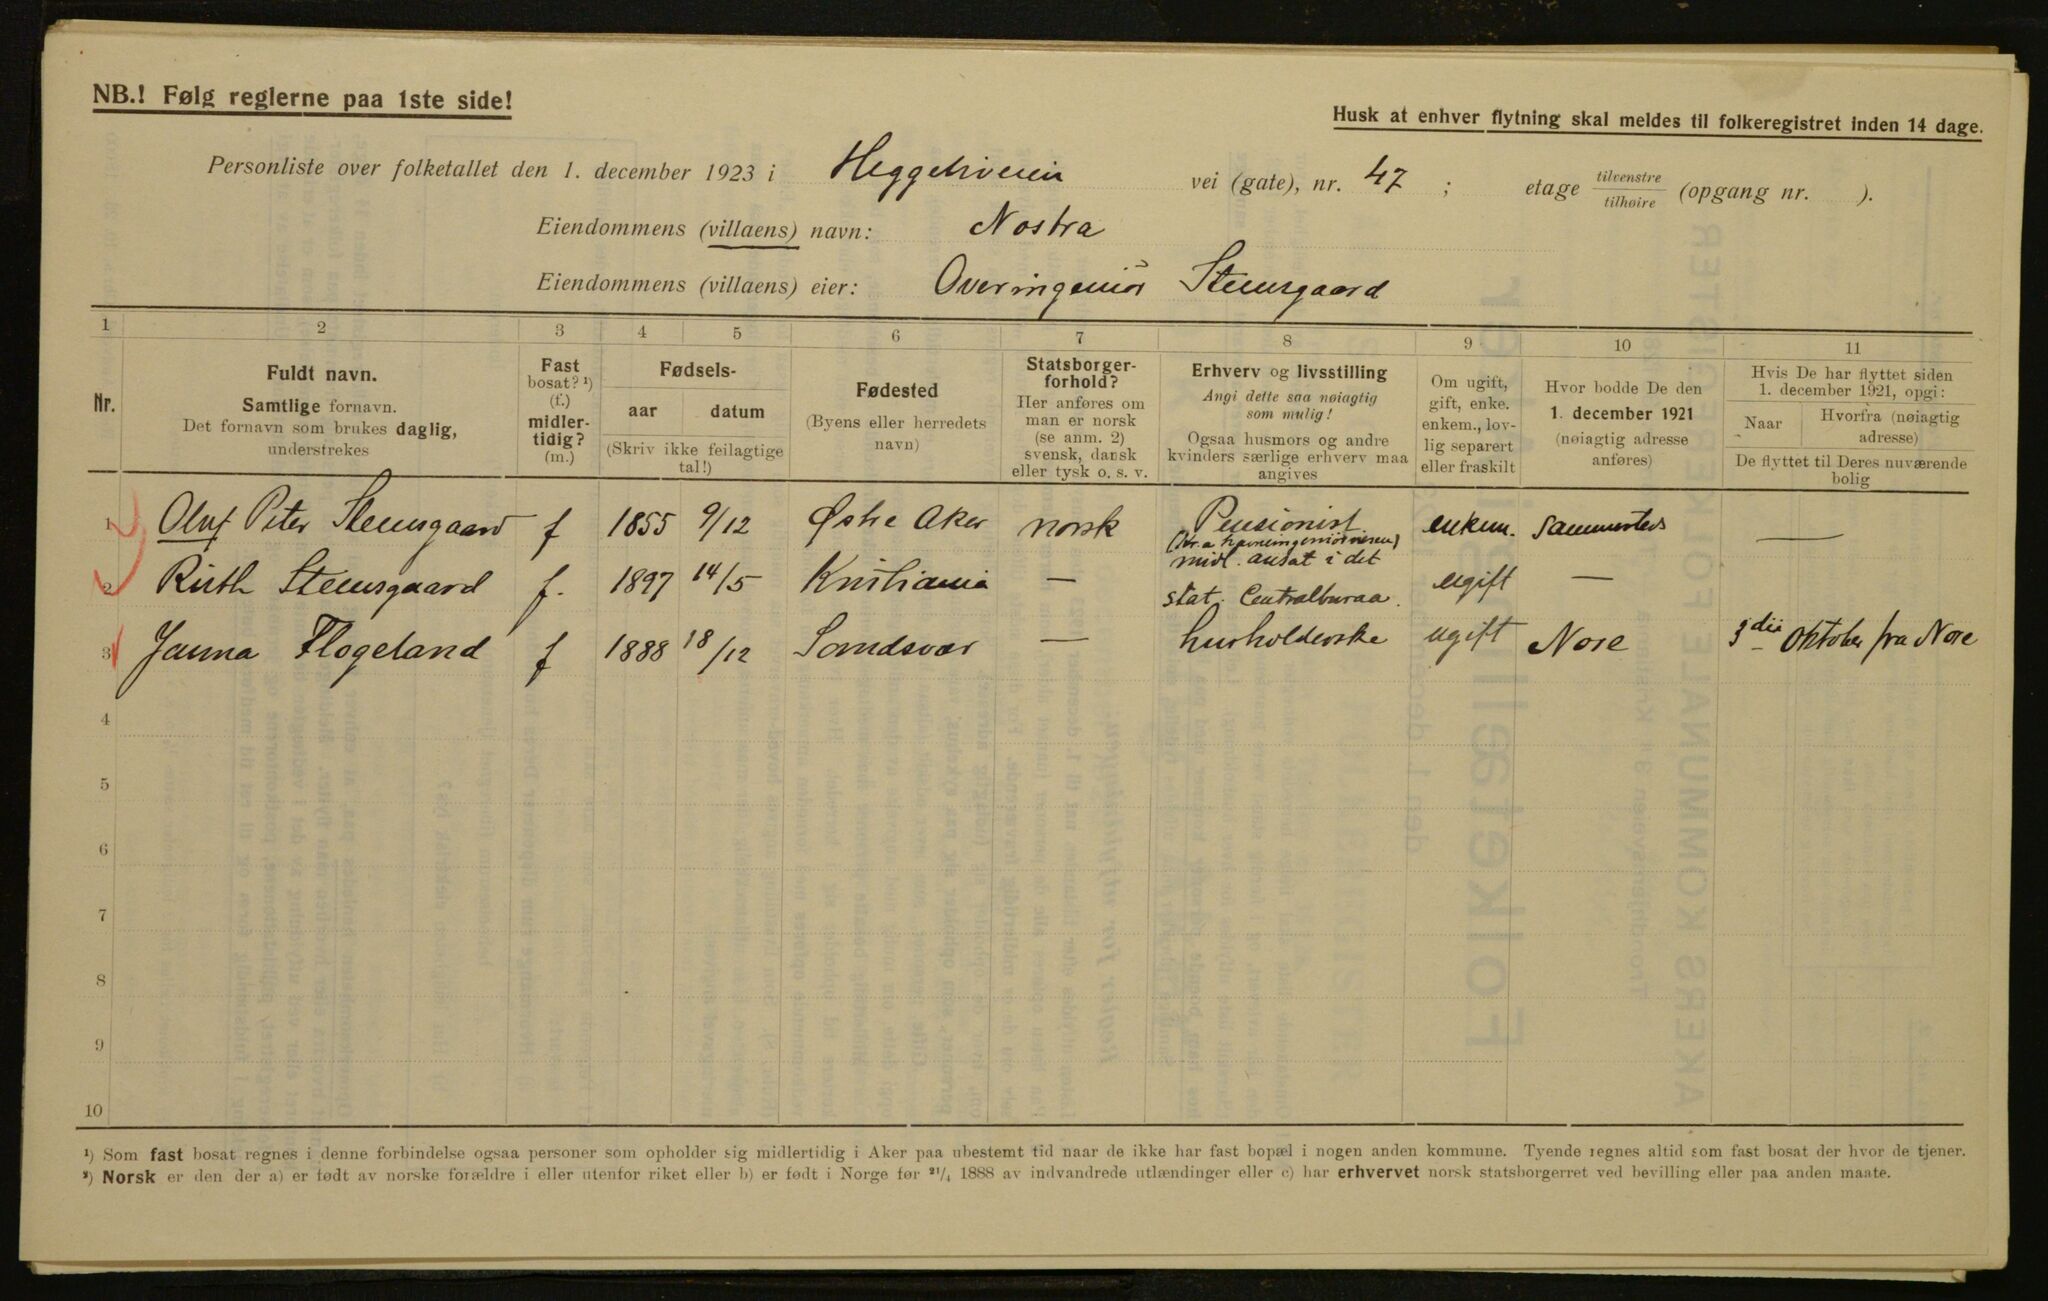 NB.! Følg reglerne paa 1ste side!
Husk at enhver flytning skal meldes til folkeregistret inden 14 dage.
Personliste over folketallet den 1. december 1923 i Heggeliveien vei (gate), nr. 47 ; etage tilvenstre/tilhøire (opgang nr. ).
Eiendommens (villaens) navn: Nostra
Eiendommens (villaens) eier: Overingeniør Steensgaard
1 2 3 4 5 6 7 8 9 10 11
Nr.
Fuldt navn.
Samtlige fornavn.
Det fornavn som brukes daglig,
understrekes
Fast
bosat? ¹)
(f.)
midler-
tidig?
(m.)
Fødsels-
aar datum
(Skriv ikke feilagtige
tal!)
Fødested
(Byens eller herredets
navn)
Statsborger-
forhold?
Her anføres om
man er norsk
(se anm. 2)
svensk, dansk
eller tysk o. s. v.
Erhverv og livsstilling
Angi dette saa nøiagtig
som mulig!
Ogsaa husmors og andre
kvinders særlige erhverv maa
angives
Om ugift,
gift, enke.
enkem., lov-
lig separert
eller fraskilt
Hvor bodde De den
1. december 1921
(nøiagtig adresse
anføres)
Hvis De har flyttet siden
1. december 1921, opgi:
Naar
Hvorfra (nøiagtig
adresse)
De flyttet til Deres nuværende
bolig
1 Oluf Peter Steensgaard f 1855 9/12 Østre Aker norsk Pensionist enkem. Sammesteds —
2 Ruth Steensgaard f. 1897 14/5 Kristiania — midl. ansat i det
stat. Centralburaa. ugift —
3 Janna Flogeland f 1888 18/12 Sandsvær — husholderske ugift Nore 3die Oktober fra Nore
4
5
6
7
8
9
10
¹) Som fast bosat regnes i denne forbindelse ogsaa personer som opholder sig midlertidig i Aker paa ubestemt tid naar de ikke har fast bopæl i nogen anden kommune. Tyende regnes altid som fast bosat der hvor de tjener.
²) Norsk er den der a) er født av norske forældre i eller utenfor riket eller b) er født i Norge før 21/4 1888 av indvandrede utlændinger eller c) har erhvervet norsk statsborgerret ved bevilling eller paa anden maate.